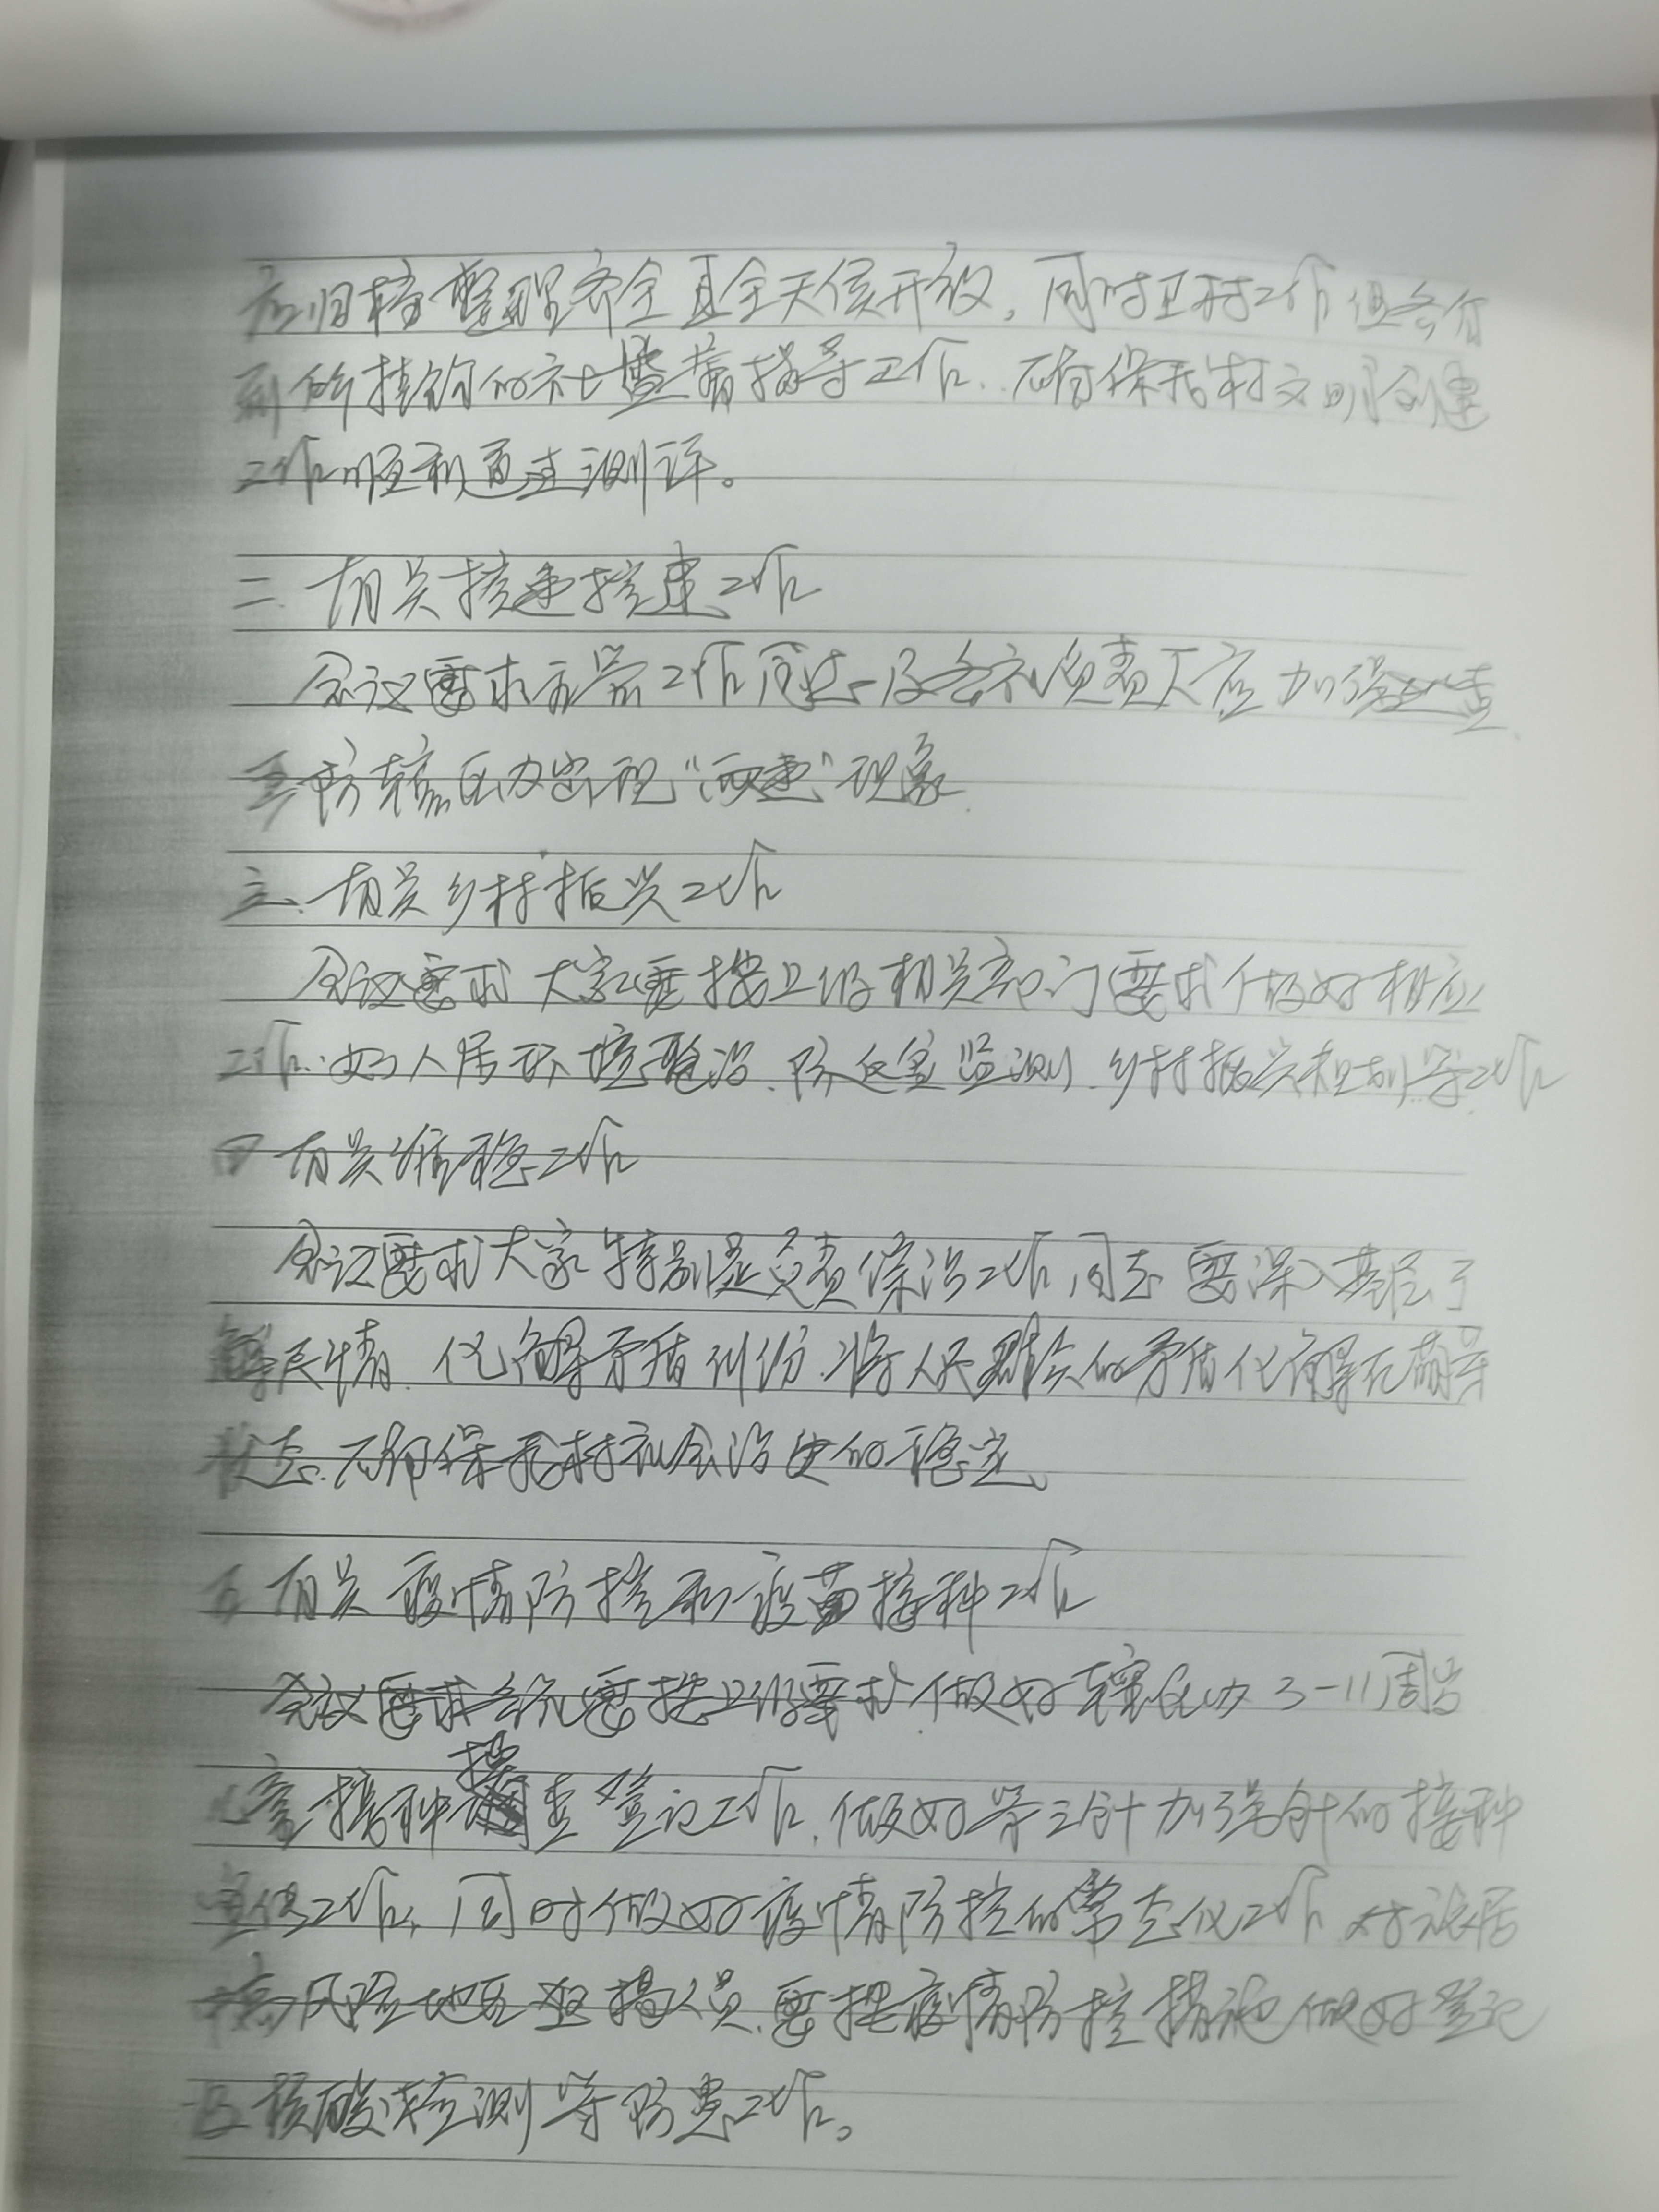 应归档整理齐全且全天候开放，同时卫村工作组各分
到所挂钩的社里督指导工作，确保我村文明创建
工作顺利通过测评。
二、有关控违拆违工作
会议要求主管工作同志及各社负责人应加强巡查
严防辖区内出现“两违”现象
三、有关乡村振兴工作
会议要求大家要按上级相关部门要求做好相应
工作，如人居环境整治、防返贫监测、乡村振兴规划等工作
四 有关维稳工作
会议要求大家特别是负责综治工作同志要深入基层了
解民情，化解矛盾纠纷，将人民群众的矛盾化解在萌芽
状态，确保我村社会治安的稳定。
五 有关疫情防控和疫苗接种工作
会议要求各社要按上级要求做好辖区内3-11周岁
儿童接种摸查登记工作，做好第三针加强针的接种
宣传工作，同时做好疫情防控的常态化工作，对旅居
中高风险地区 人员，要按疫情防控措施做好登记
及核酸检测等防患工作。